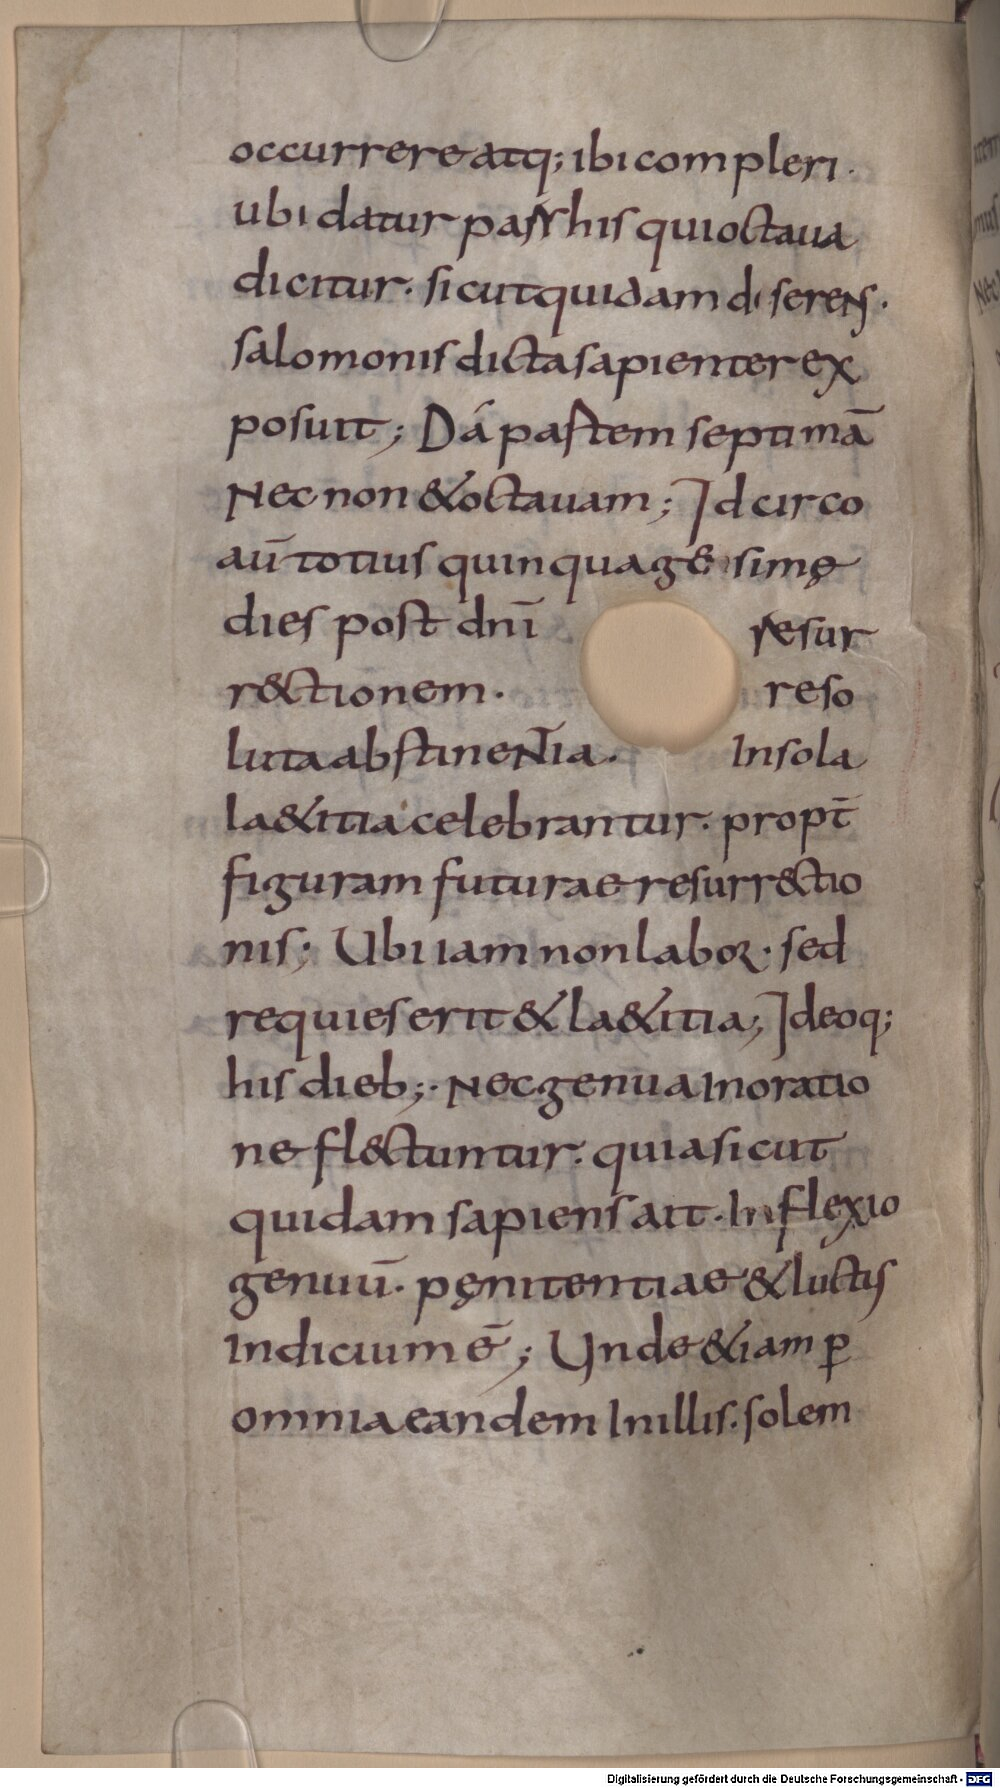 occurrere atq; ibi compleri·
ubi datur pars his qui octaua
dicitur· sicut quidam diserens·
salomonis dicta sapienter ex
posuit; Dá partem septimā
Nec non & octauam; Idcirco
aū totius quinquagesimę
dies post dnī resur
r&ctionem· reso
luta abstinentia· In sola
la&itia celebrantur· propt̄
figuram futurae resurr&ctio
nis; Ubi iam non labor· sed
requies erit & la&itia; Ideoq;
his dieb;· Nec genua in oratio
ne fl&ctuntur· quia sicut
quidam sapiens ait· Inflexio
genuū· pęnitentiae & luctus
indicium ē; Unde &iam ꝑ
omnia eandem In illis· solem
Digitalisierung gefördert durch die Deutsche Forschungsgemeinschaft - DFG